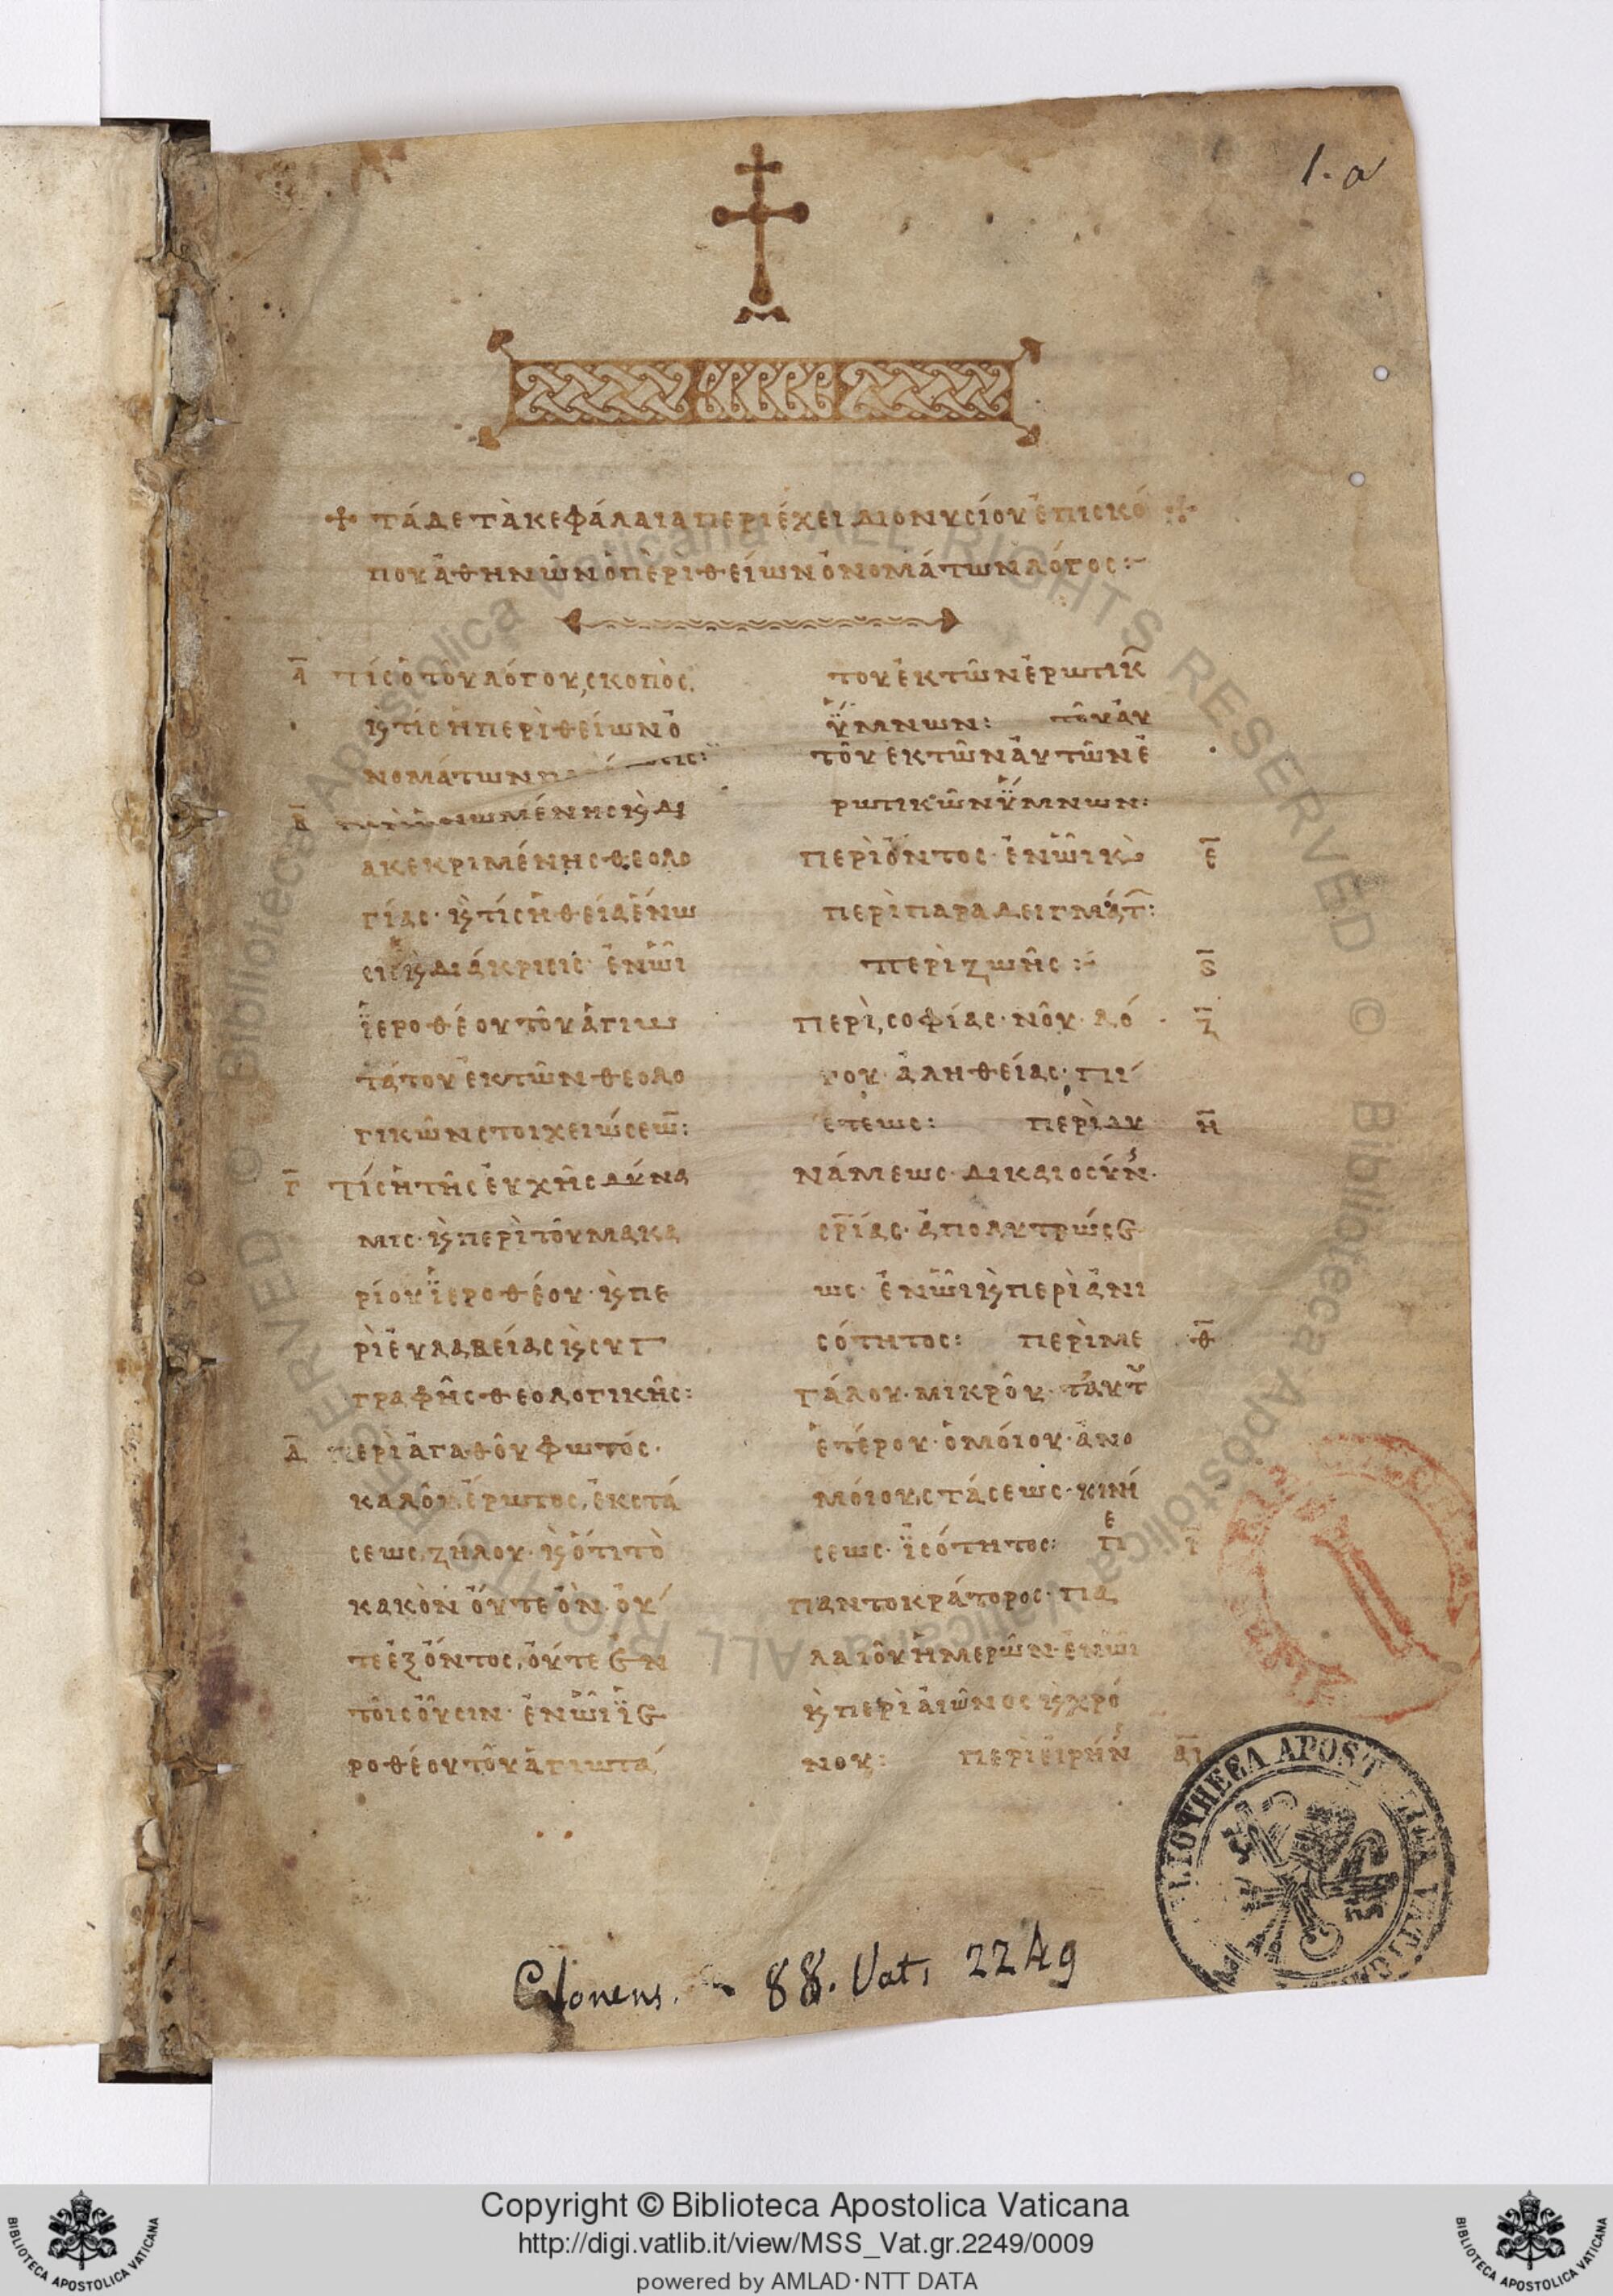 1. a
✢ ΤΆΔΕ ΤᾺ ΚΕΦΆΛΑΙΑ ΠΕΡΙΈΧΕΙ ΔΙΟΝΥΣΊΟΥ ἘΠΙΣΚΌ ✢
ΠΟΥ ἈΘΗΝΩ͂Ν Ὁ ΠΕΡῚ ΘΕΊΩΝ ὈΝΟΜΆΤΩΝ ΛΌΓΟΣ:~
Α̅ ΤΊΣ Ὁ ΤΟΥ͂ ΛΌΓΟΥ, ΣΚΟΠῸΣ.
Ϗ ΤΊΣ Ἡ ΠΕΡῚ ΘΕΊΩΝ Ὀ
ΝΟΜΆΤΩΝ
Β̅ ΜΈΝΗΣ Ϗ ΔΙ
ΑΚΕΚΡΙΜΈΝΗΣ ΘΕΟΛΟ
ΓΊΑΣ· Ϗ ΤΊΣ Ἡ ΘΕΊΑ ἝΝΩ
ΣΙΣ Ϗ ΔΙΆΚΡΙΣΙΣ· ἘΝ Ὧ͂Ι
ἹΕΡΟΘΈΟΥ ΤΟΥ͂ ἉΓΙΩ
ΤΆΤΟΥ ἘΚ ΤΩ͂Ν ΘΕΟΛΟ
ΓΙΚΩ͂Ν ΣΤΟΙΧΕΙΏΣΕΩ̅:
Γ̅ ΤΊΣ Ἡ ΤΗ͂Σ ΕὐΧΗ͂Σ ΔΎΝΑ
ΜΙΣ· Ϗ ΠΕΡῚ ΤΟΥ͂ ΜΑΚΑ
ΡΊΟΥ ἹΕΡΟΘΈΟΥ· Ϗ ΠΕ
ΡῚ ΕὐΛΑΒΕΊΑΣ Ϗ ΣΥΓ
ΓΡΑΦΗ͂Σ ΘΕΟΛΟΓΙΚΗ͂Σ:
Δ̅ ΠΕΡῚ ἈΓΑΘΟΥ͂ ΦΩΤΌΣ·
ΚΑΛΟΥ͂, ἜΡΩΤΟΣ, ἘΚΣΤΆ
ΣΕΩΣ, ΖΉΛΟΥ· Ϗ ὍΤΙ ΤῸ
ΚΑΚῸΝ ΟὔΤΕ ὊΝ· Οὔ
ΤΕ ἘΞ ὌΝΤΟΣ, ΟὔΤΕ ἘΝ
ΤΟΙ͂Σ ΟὖΣΙΝ· ἘΝ Ὧ͂Ι ἹΕ
ΡΟΘΈΟΥ ΤΟΥ͂ ἉΓΙΩΤΆ
ΤΟΥ ἘΚ ΤΩ͂Ν ἘΡΩΤΙΚ̅
ὝΜΝΩΝ: ΤΟΥ͂ ΑὐΥ
ΤΟΥ͂ ἘΚ ΤΩ͂Ν ΑὐΤΩ͂Ν Ἐ
ΡΩΤΙΚΩ͂Ν ὝΜΝΩΝ:
ΠΕΡῚ ὌΝΤΟΣ· ἘΝ Ὧ͂Ι Ϗ Ε̅
ΠΕΡῚ ΠΑΡΑΔΕΙΓΜΆΤ̅:
ΠΕΡῚ ΖΩΗ͂Σ:~ Ϛ̅
ΠΕΡῚ, ΣΟΦΊΑΣ· ΝΟΥ͂· ΛΌ Ζ̅
ΓΟΥ· ἈΛΗΘΕΊΑΣ· ΠΊ
ΣΤΕΩΣ: ΠΕΡῚ ΔΥ Η̅
ΝΆΜΕΩΣ· ΔΙΚΑΙΟΣΎΝ·
Σ̅Ρ̅ΊΑΣ· ἈΠΟΛΥΤΡΏΣΕ
ΩΣ· ἘΝ Ὧ͂Ι Ϗ ΠΕΡῚ ἈΝΙ
ΣΌΤΗΤΟΣ: ΠΕΡῚ ΜΕ Θ̅
ΓΆΛΟΥ· ΜΙΚΡΟΥ͂· ΤΑὐΤ
ἙΤΈΡΟΥ· ὉΜΟΊΟΥ· ἈΝΟ
ΜΟΊΟΥ, ΣΤΆΣΕΩΣ· ΚΙΝΉ
ΣΕΩΣ· ἸΣΌΤΗΤΟΣ: ΠΕ Ι̅
ΠΑΝΤΟΚΡΆΤΟΡΟΣ· ΠΑ
ΛΑΙΟΥ͂ ἩΜΕΡΩ͂Ν· ἘΝ Ὧ͂Ι
Ϗ ΠΕΡῚ ΑἸΩ͂ΝΟΣ Ϗ ΧΡΌ
ΝΟΥ: ΠΕΡῚ ΕἸΡΉΝ ΑΙ̅
88. Vat. 2249
Copyright © Biblioteca Apostolica Vaticana
http://digi.vatlib.it/view/MSS_Vat.gr.2249/0009
powered by AMLAD·NTT DATA
BIBLIOTECA APOSTOLICA VATICANA
BIBLIOTECA APOSTOLICA VATICANA